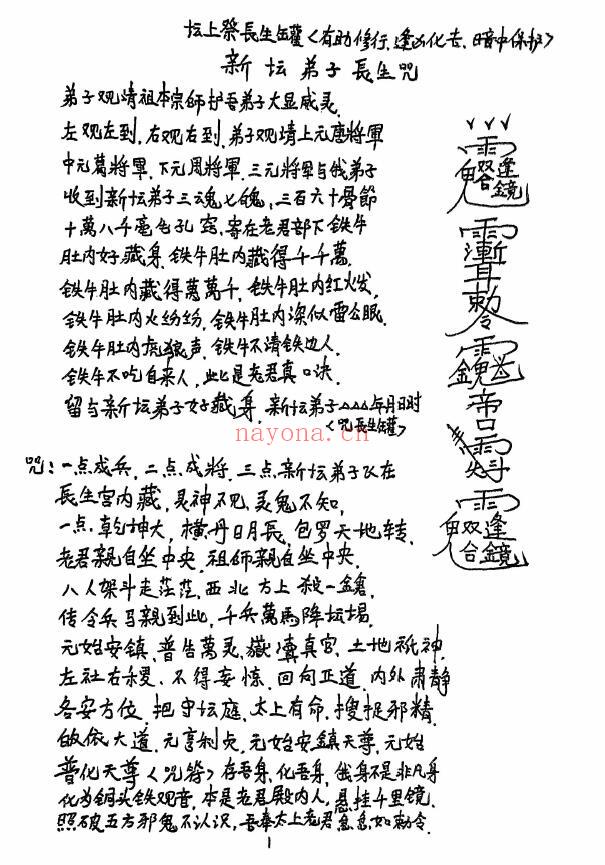 坛上祭長生缸罐〈有助修行、逢凶化吉、暗中保护〉
新坛弟子長生咒
弟子观请祖本宗师护吾弟子大显威灵.
左观左到,右观右到,弟子观請上元唐將軍
中元葛將軍,下元周將軍,三元將軍与俄弟子
收到新坛弟子三魂七魄,三百六十骨節
十萬八千毫毛孔窍,寄在老君部下铁牛
肚内好藏身,铁牛肚内藏得千千萬,
铁牛肚内藏得萬萬千,铁牛肚内红火发,
铁牛肚内火纷纷,铁牛肚内深似雷公眠,
铁牛肚内虎狼声,铁牛不请铁边人,
铁牛不吃自来人,此是老君真口诀.
留与新坛弟子好藏身,新坛弟子△△△年月日时
〈咒長生缸罐〉
咒:一点成兵,二点成將,三点新坛弟子以在
長生宫内藏,見神不见,灵鬼不知,
一点乾坤大,横丹日月長,包罗天地转,
老君親自坐中央,祖师親自坐中央,
八人架斗走茫茫,西北方上殺一鎗,
传令兵马親到此,千兵萬馬降坛場.
元始安镇,普告萬灵,嶽瀆真宫,土地祇神,
左社右稷,不得妄惊,回向正道,内外肅静
各安方位,把守坛庭,太上有命,搜捉邪精,
皈依大道,元亨利贞,元始安鎮天尊,元始
普化天尊〈咒筶〉存吾身,化吾身,俄身不是非凡身
化为铜头铁观音,本是老君殿内人,悬挂千里鏡,
照破五方邪鬼不认识,吾奉太上老君急急如勅令.
雷
双逢
合鏡
漸
耳
勅令
帝
双逢
合鏡
nayona.cn
1